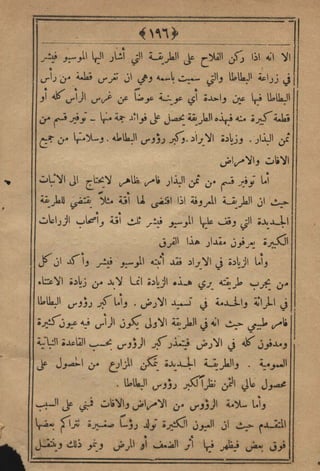 ﴿١٩٦﴾
الا انه اذا ركن الفلاح على الطريقة التي أشار اليها الموسيو فيشر
في زراعة البطاطا والتي سميت باسمه وهي ان تغرس قطعة من رأس
البطاطا فيها عين واحدة أي عوينة عوضاً عن غرس الرأس كله أو
قطعة كبيرة منه فبهذه الطريقة يحصل على فوائد جمة منها ــ توفير قسم من
ثمن البذار . وزيادة الايراد . وكبر رؤوس البطاطه . وسلامتها من جميع
الافات والامراض
أما توفير قسم من ثمن البذار فامر ظاهر لايحتاج الى الاثبات
حيث ان الطريقة المعروفة اذا اقتضى لها أقة مثلاً يقتضي للطريقة
الجديدة التي وقف عليها الموسيو فيشر ثلث أقة وأصحاب الزراعات
الكبيرة يعرفون مقدار هذا الفرق
وأما الزيادة في الايراد فقد أثبته الموسيو فيشر وأكد ان كل
من يجرب طريقته يرى هذه الزيادة انما لابد من زيادة الاعتناء
في الحراثة والخدمة في تسميد الارض . وأما كبر رؤوس البطاطا
فامر طبيعي حيث انه في الطريقة الاولى يكون الرأس فيه عيون كثيرة
ومدفون كله في الارض فيتعذر كبر الرؤوس بحسب القاعدة النباتية
العمومية . والطريقة الجديدة يتمكن المزارع من الحصول على
محصول عالي الثمن نظراً لكبر رؤوس البطاطا .
وأما سلامة الرؤوس من الامراض والافات فمبني على السبب
المتقدم حيث ان العيون الكثيرة تولد رؤساً صغيرة تتراكم بعضها
فوق بعض فيظهر فيها أثر الضعف أو المرض ونمو ذلك وينتقل